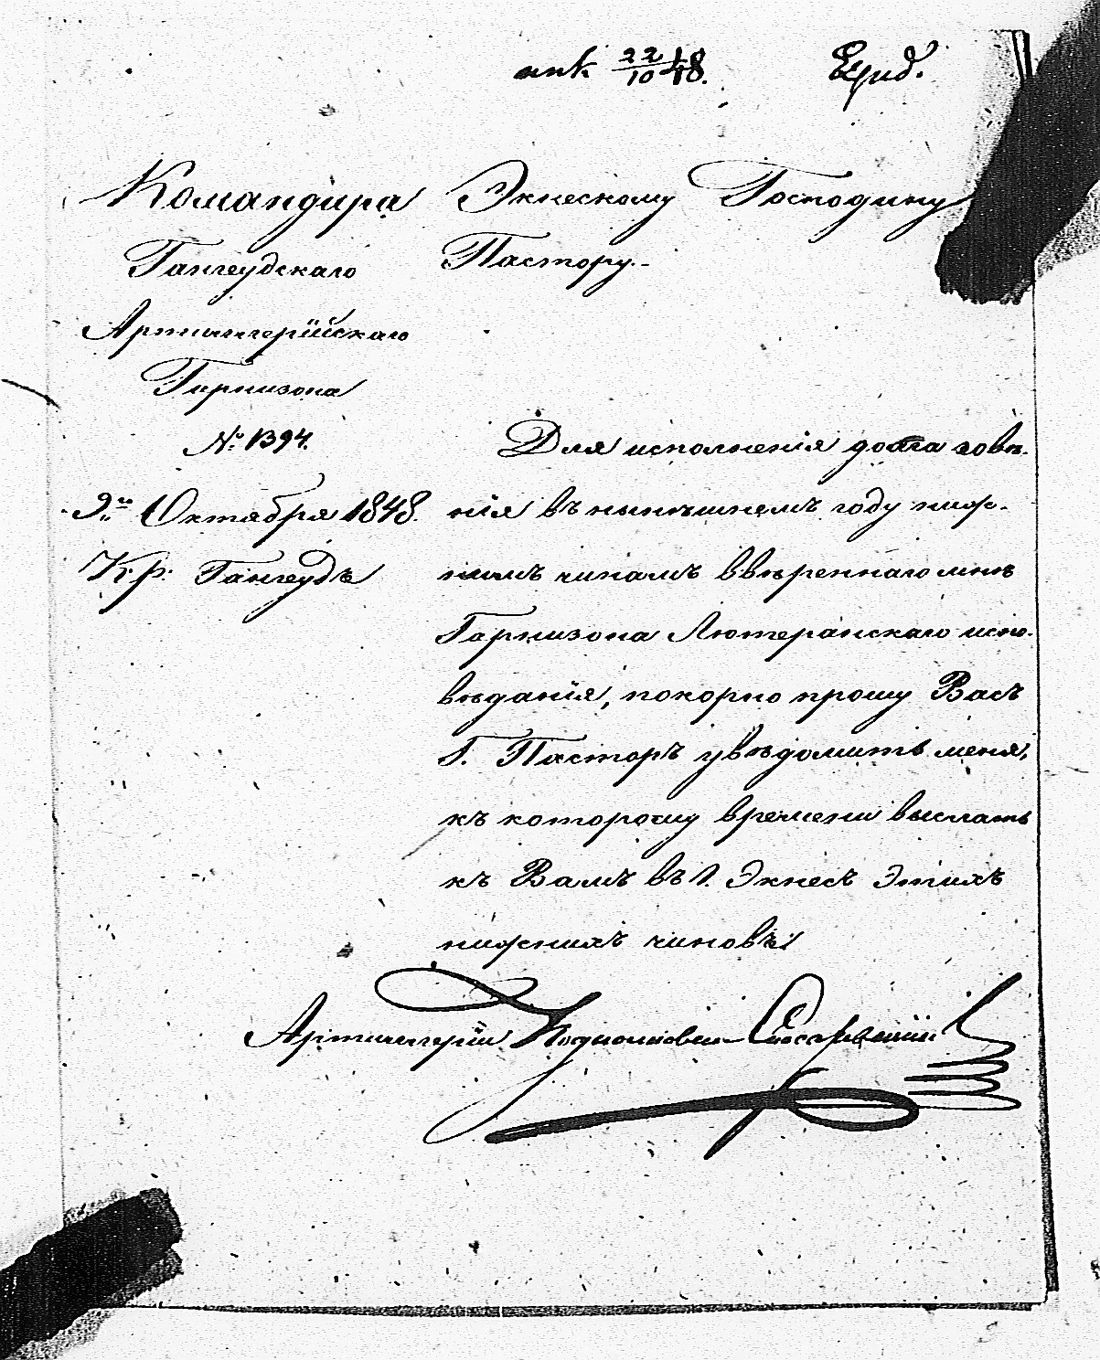 ank 22/10 48.
Командира
Гангеудскаго
Артиллерійскаго
Гарнизона
№ 1394.
9го Октября 1848.
Кр: Гангеудъ
Экнескому Господину
Пастору.
Для исполненія долга говѣ-
нія въ нынѣшнемъ году ниж-
нимъ чинамъ ввѣреннаго мнѣ
Гарнизона Лютеранскаго испо-
вѣданія, покорно прошу Васъ
Г. Пасторъ увѣдомить меня,
къ которому времени выслать
къ Вамъ въ Г. Экнесъ этихъ
нижнихъ чиновъ.
Артиллеріи